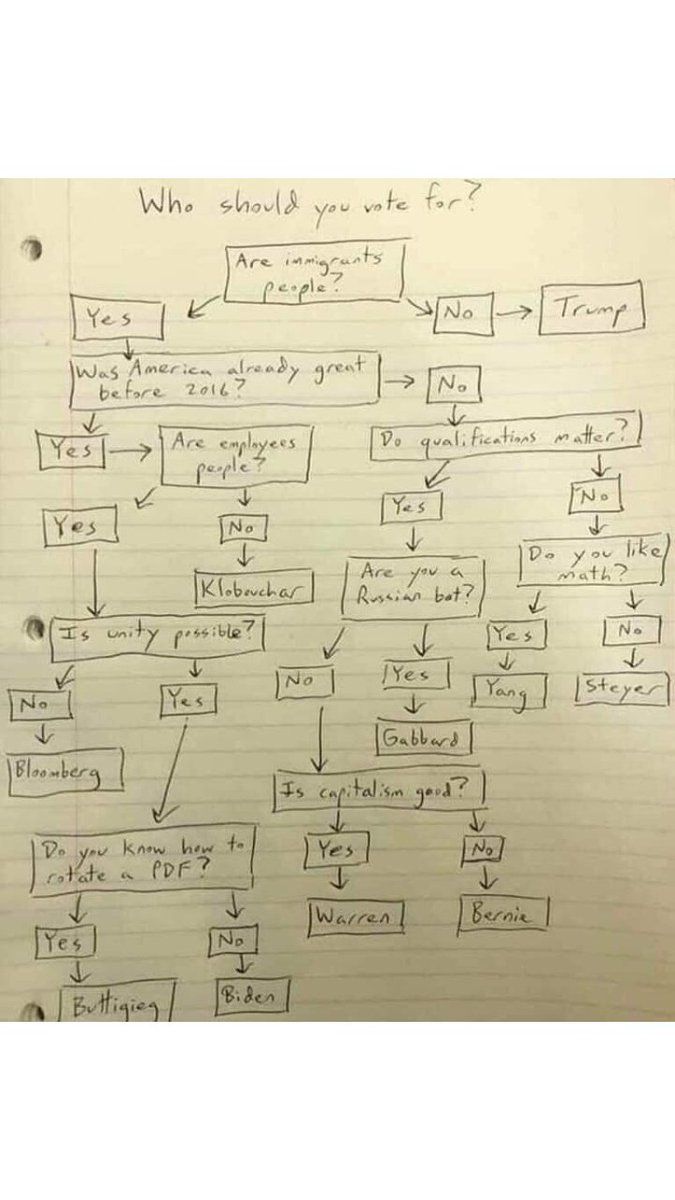 Who should you vote for?
Are immigrants
people?
Yes
No
Trump
Was America already great
before 2016?
No
Yes
Are employees
people?
Do qualifications matter?
Yes
No
Yes
No
Klobouchar
Are you a
Russian bot?
Do you like
math?
Is unity possible?
Yes
No
No
Yes
No
Yes
Yang
Steyer
Gabbard
Bloomberg
Is capitalism good?
Do you know how to
rotate a PDF?
Yes
No
Warren
Bernie
Yes
No
Buttigieg
Biden